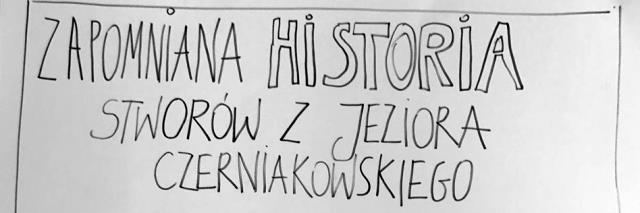 ZAPOMNIANA HISTORIA
STWORÓW Z JEZIORA
CZERNIAKOWSKIEGO